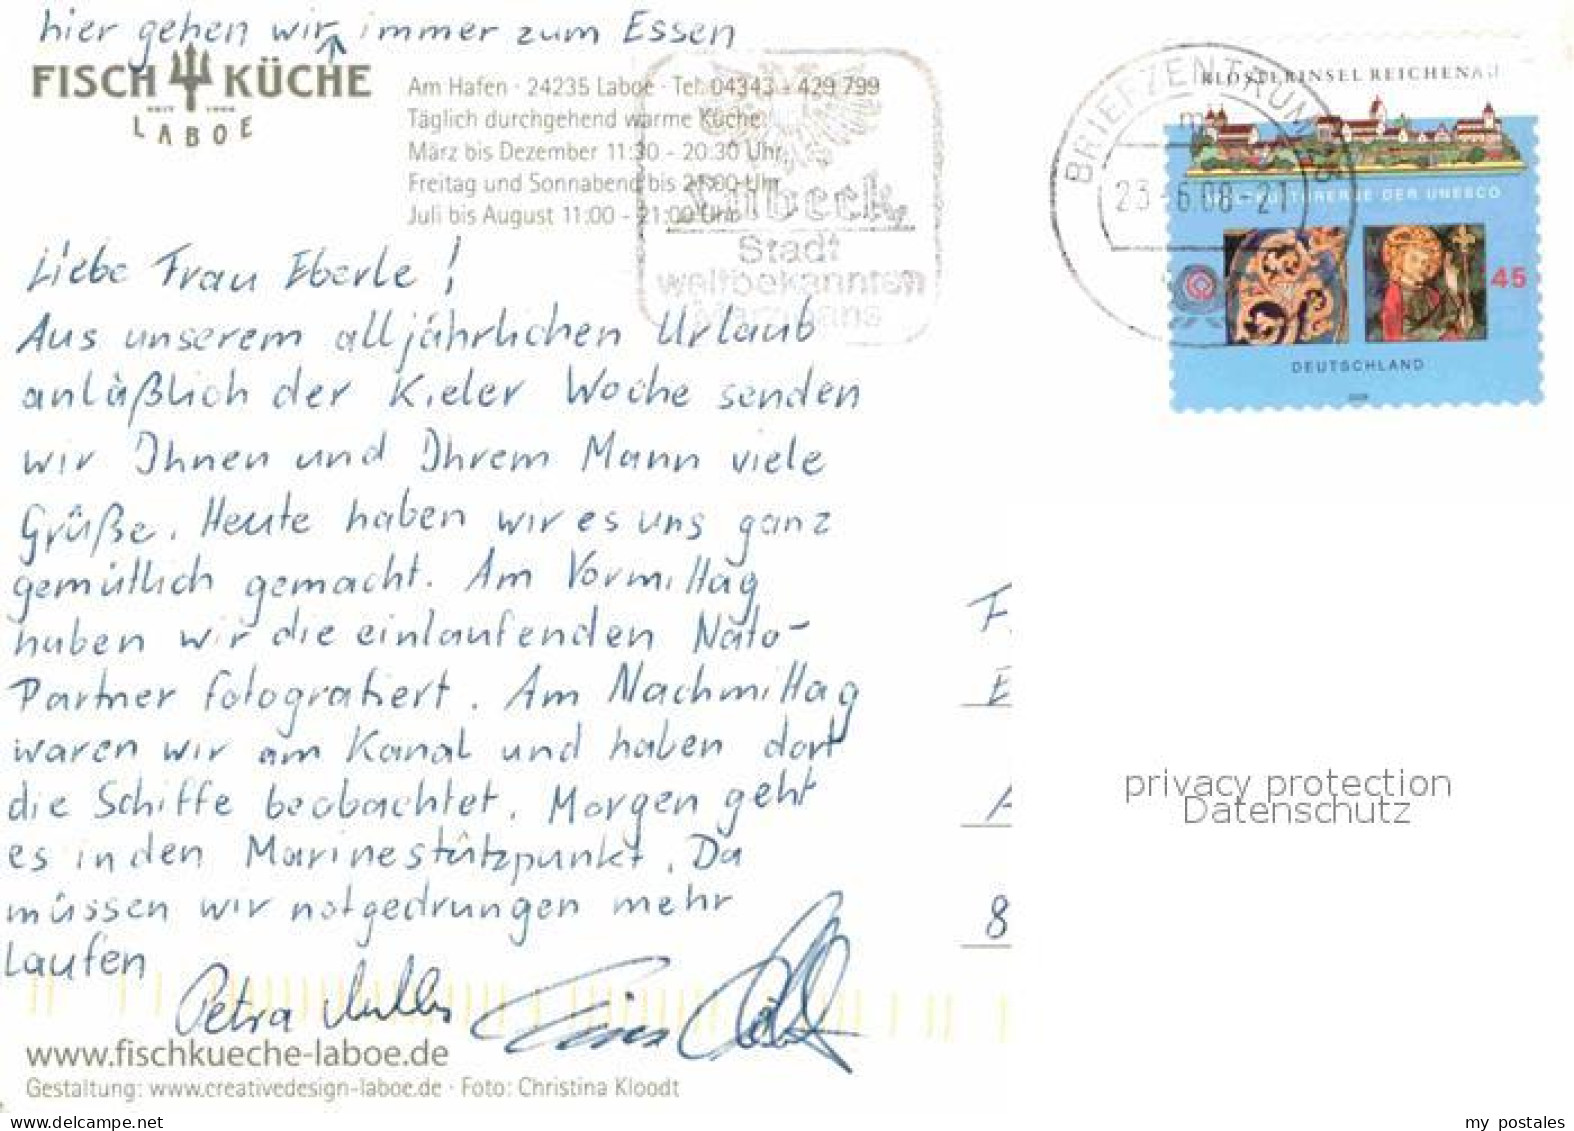 hier gehen wir immer zum Essen
FISCH KÜCHE
LABOE
Am Hafen · 24235 Laboe · Tel. 04343 - 429 799
Täglich durchgehend warme Küche:
März bis Dezember 11:30 - 20:30 Uhr
Freitag und Sonnabend bis 21:00 Uhr
Juli bis August 11:00 - 21:00 Uhr
Lübeck
Stadt
weltbekannten
Marzipans
BRIEFZENTRUM
23.-6.08-21
KLOSTERINSEL REICHENAU
WELTKULTURERBE DER UNESCO
45
DEUTSCHLAND
Liebe Frau Eberle!
Aus unserem alljährlichen Urlaub
anläßlich der Kieler Woche senden
wir Ihnen und Ihrem Mann viele
Grüße. Heute haben wir es uns ganz
gemütlich gemacht. Am Vormittag
haben wir die einlaufenden Nato-
Partner fotografiert. Am Nachmittag
waren wir am Kanal und haben dort
die Schiffe beobachtet. Morgen geht
es in den Marinestützpunkt. Da
müssen wir notgedrungen mehr
laufen
Petra
F
E
A
8
privacy protection
Datenschutz
www.fischkueche-laboe.de
Gestaltung: www.creativedesign-laboe.de · Foto: Christina Kloodt
www.delcampe.net
my_postales